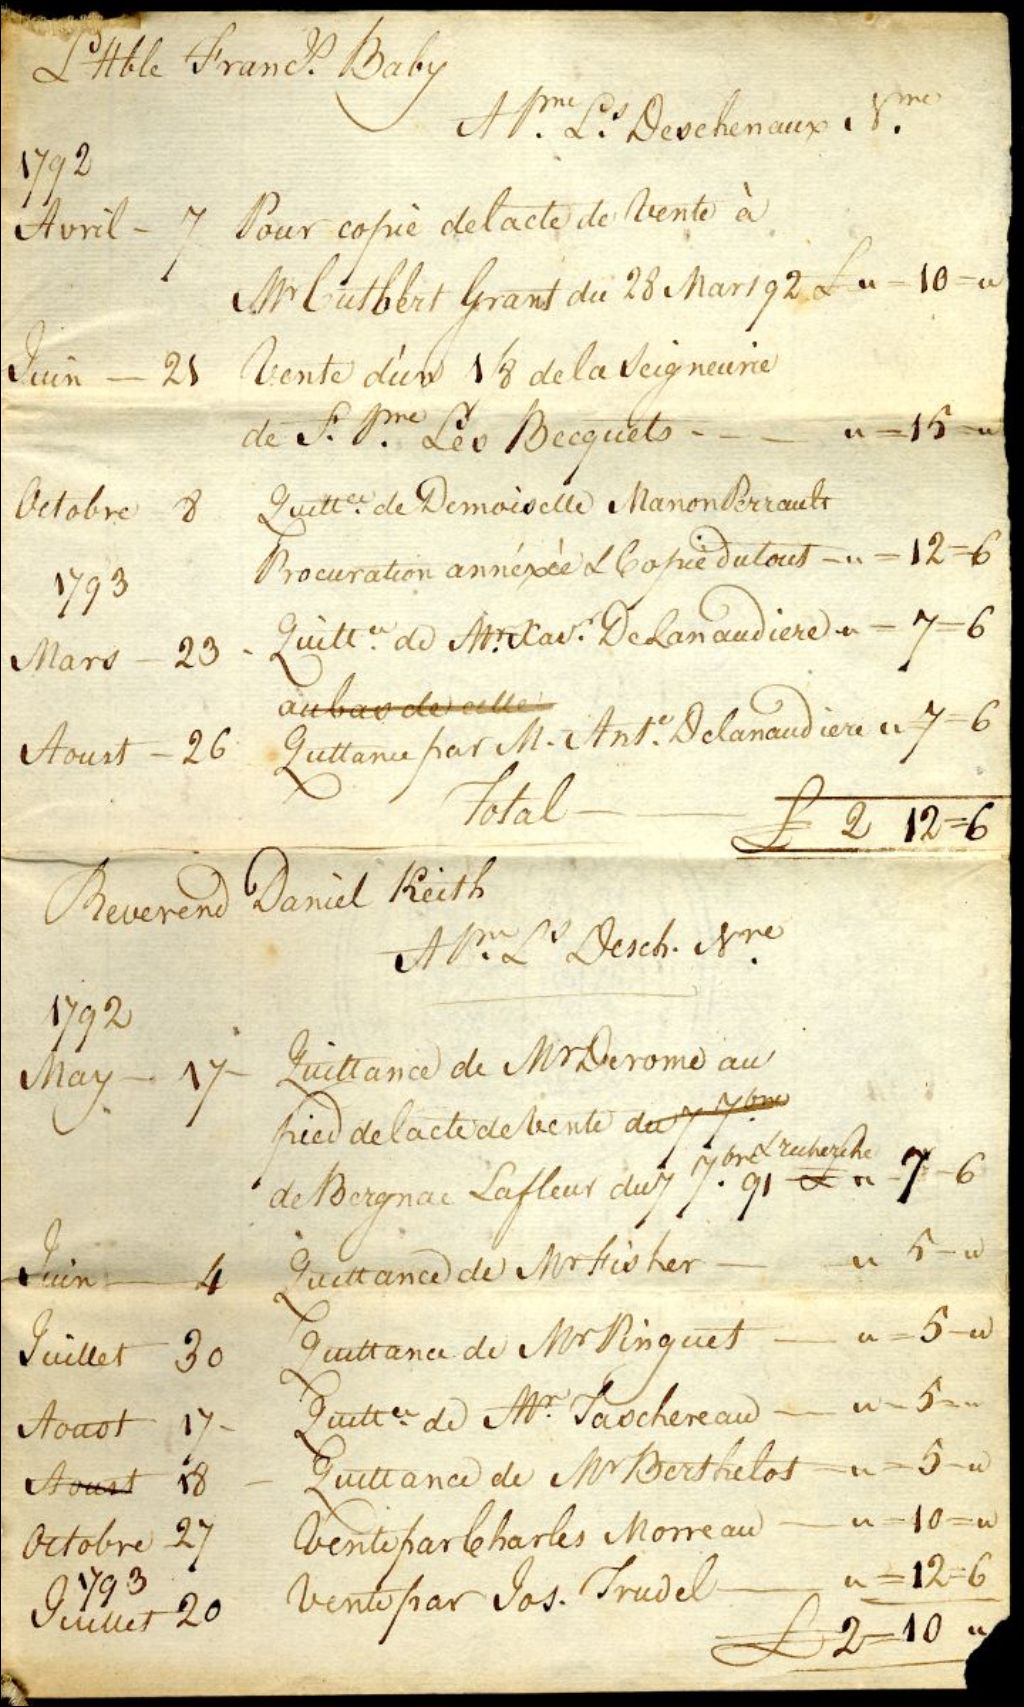 L'Hble Franc.s Baby
A P.me L.s Deschenaux N.me
1792
Avril - 7 Pour copie de lacte de Vente à
Mr Cuthbert Grant du 28 Mars 92 £ " = 10 = "
Juin — 21 Vente d'un 1/8 de la Seigneurie
de S.t P.me Les Becquets - - — " = 15 = "
Octobre 8 Quitt.ce de Demoiselle Manon Perrault
Procuration annéxée & Copie du tout - " = 12 = 6
1793
Mars - 23 - Quitt.ce de Mr. Xav.r DeLanaudiere " = 7 = 6
au bas de celle
Aoust - 26 Quttance par M. Ant.e Delanaudiere " 7 = 6
Total — — £ 2 12 = 6
Reverend Daniel Keith
A P.me L.s Desch. N.re
1792
May — 17 - Quittance de Mr Derome au
pied de lacte de vente du 7 7.bre
& recherche
de Bergnac Lafleur du 7 7.bre 91 £ " 7 - 6
Juin — 4 Quittance de Mr Fisher — " 5 - "
Juillet 30 Quittance de Mr Pinguet — " = 5 - "
Aoust 17 - Quitt.ce de Mr. Taschereau — " - 5 - "
Aoust 18 - Quittance de Mr Berthelot - " = 5 - "
Octobre 27 Vente par Charles Morreau — " = 10 = "
1793
Juillet 20 Vente par Jos. Trudel — " = 12 = 6
£ 2 = 10 "